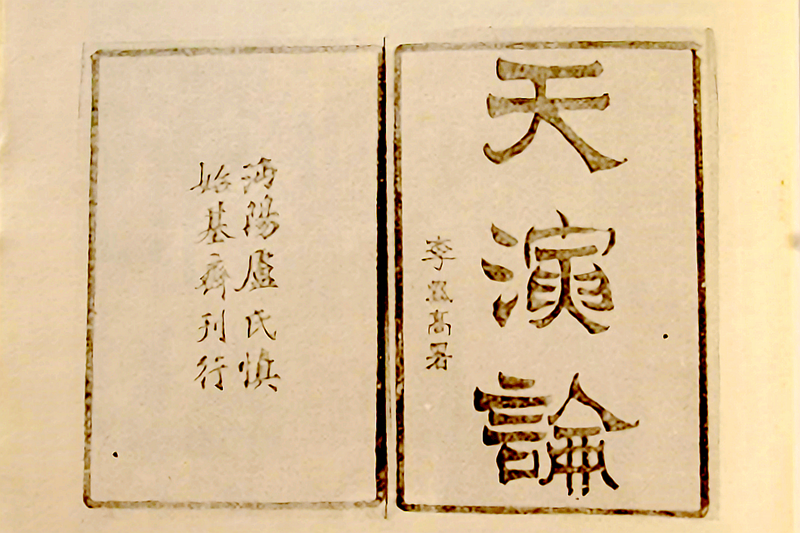 天演論
李登高署
沔陽盧氏慎
始基齋刊行